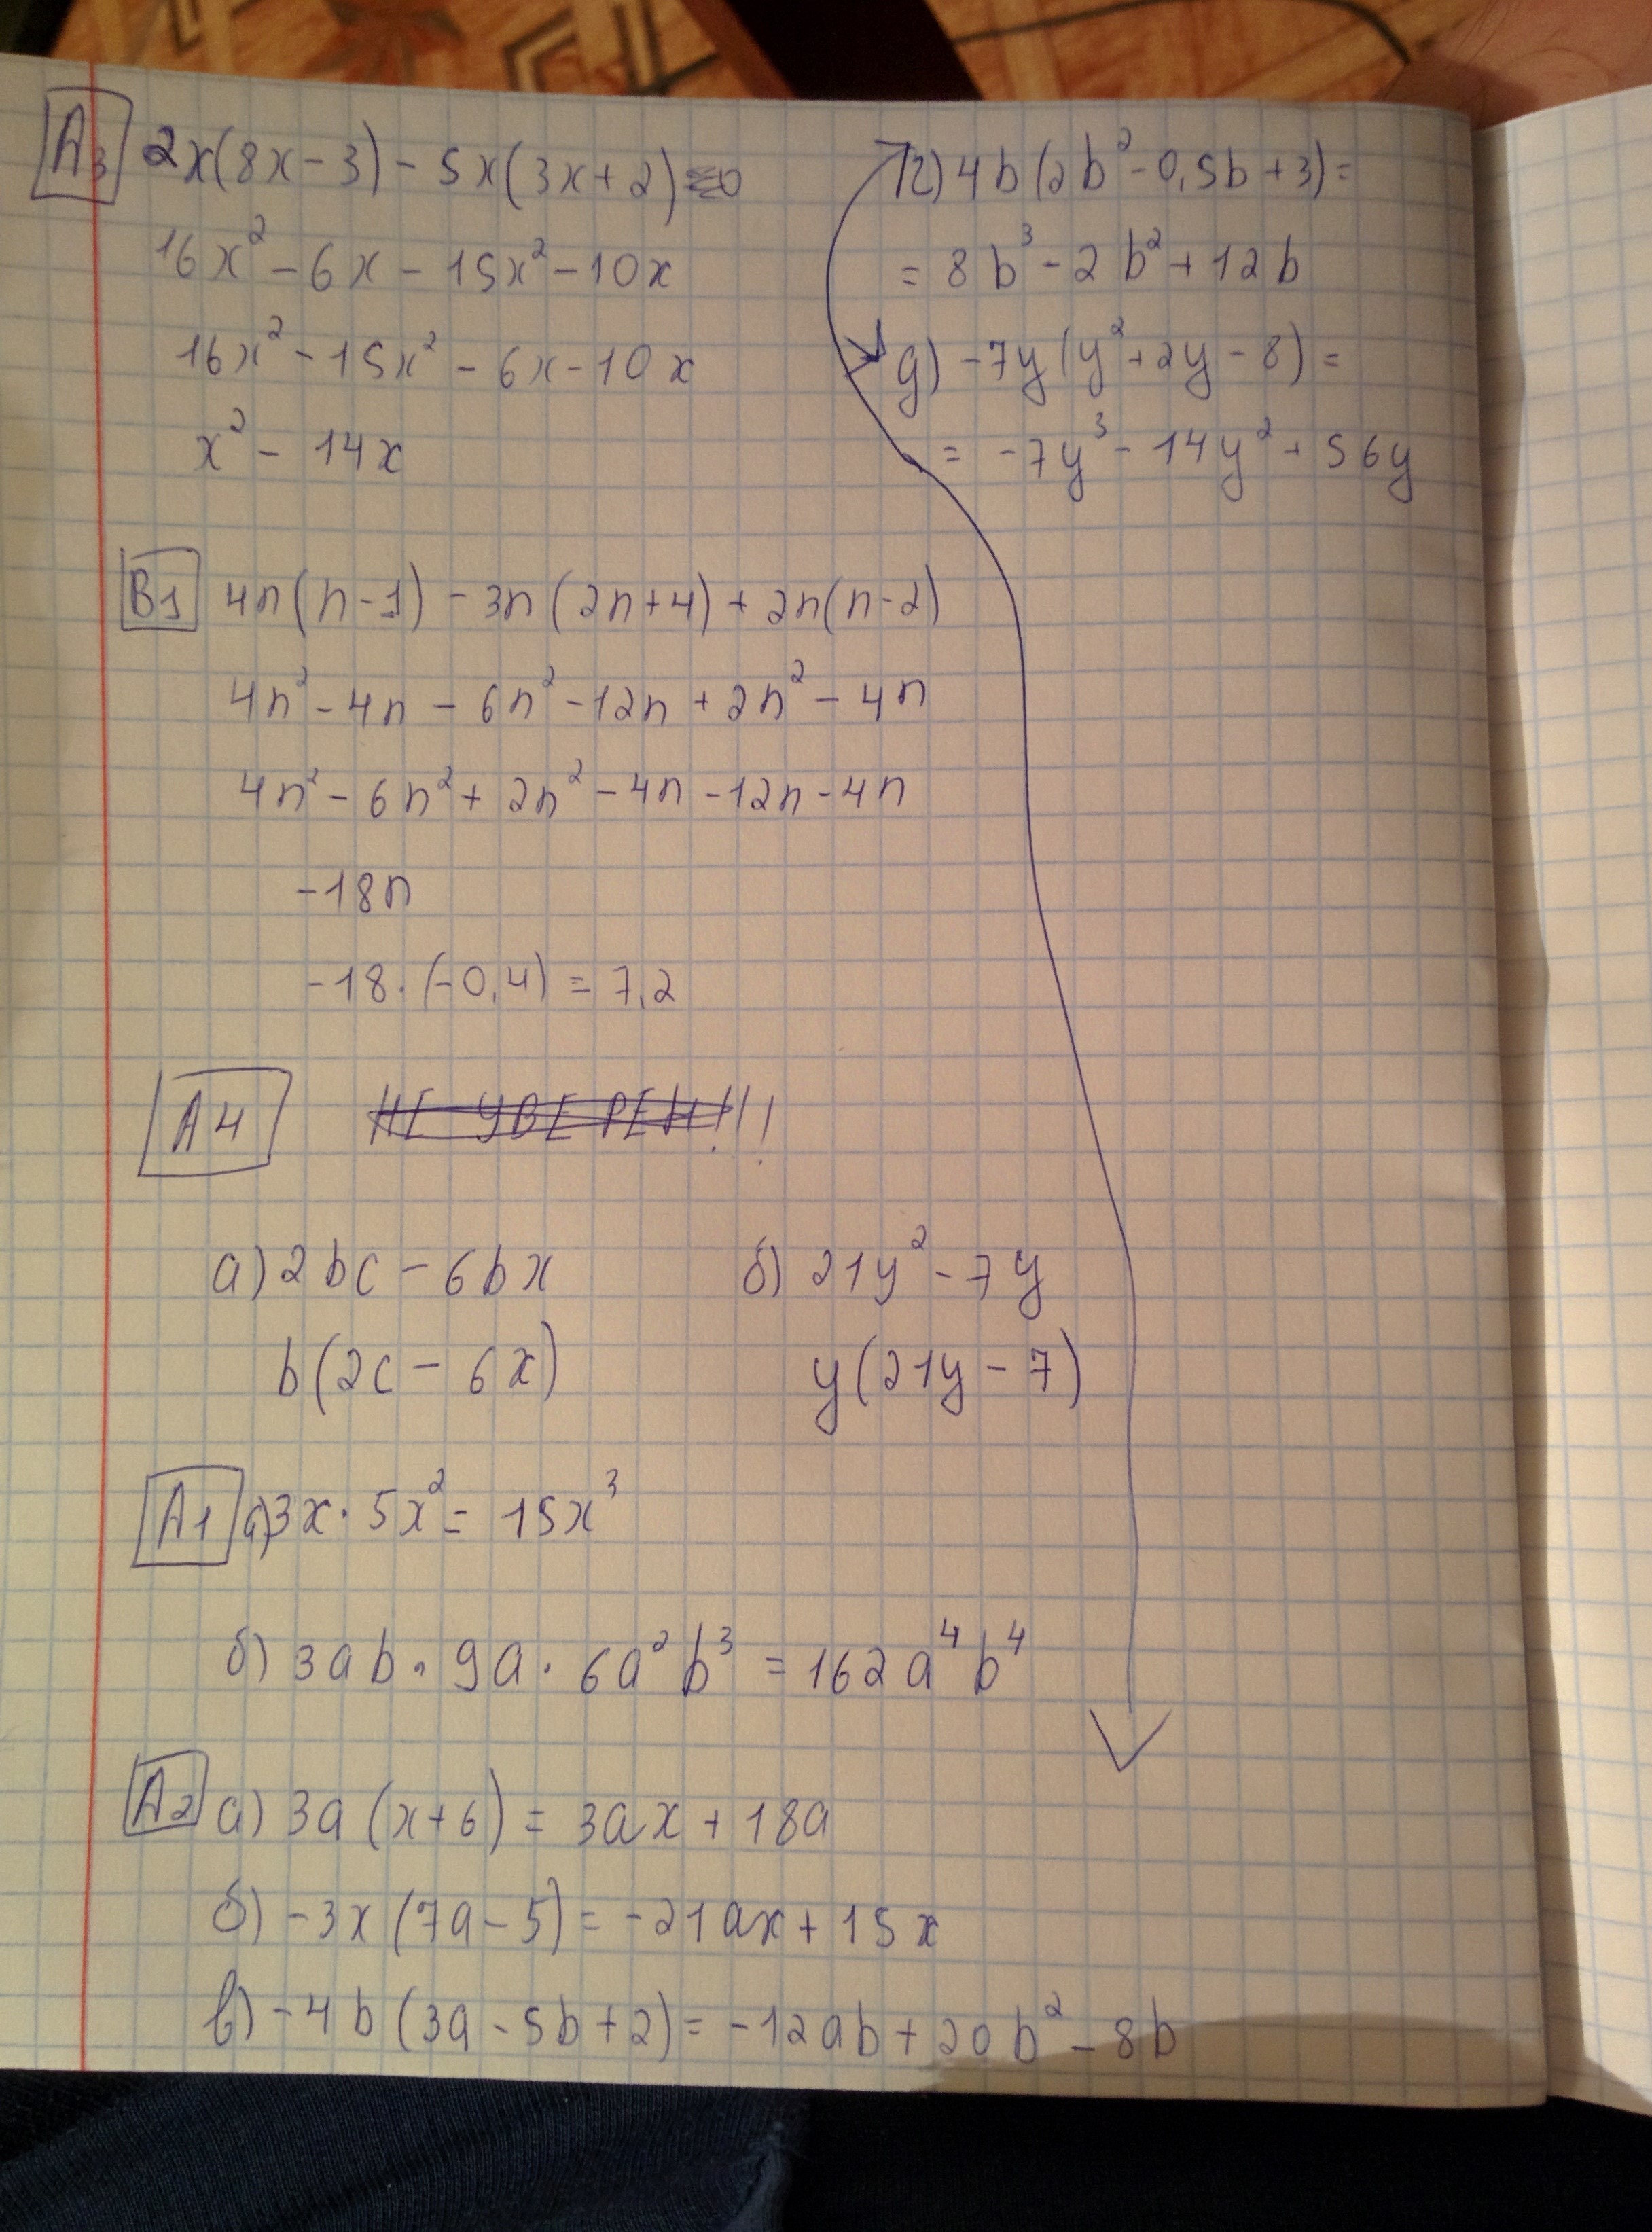 А3 2x(8x-3)-5x(3x+2)
16x²-6x-15x²-10x
16x²-15x²-6x-10x
x²-14x
г) 4b(2b²-0,5b+3)=
=8b³-2b²+12b
д) -7y(y²+2y-8)=
= -7y³-14y²+56y
В1 4n(n-1)-3n(2n+4)+2n(n-2)
4n²-4n-6n²-12n+2n²-4n
4n²-6n²+2n²-4n-12n-4n
-18n
-18·(-0,4)=7,2
А4 НЕ УВЕРЕН!!!
а) 2bc-6bx
b(2c-6x)
б) 21y²-7y
y(21y-7)
А1 а) 3x·5x²=15x³
б) 3ab·9a·6a²b³=162a⁴b⁴
А2 а) 3a(x+6)=3ax+18a
б) -3x(7a-5)=-21ax+15x
в) -4b(3a-5b+2)=-12ab+20b²-8b